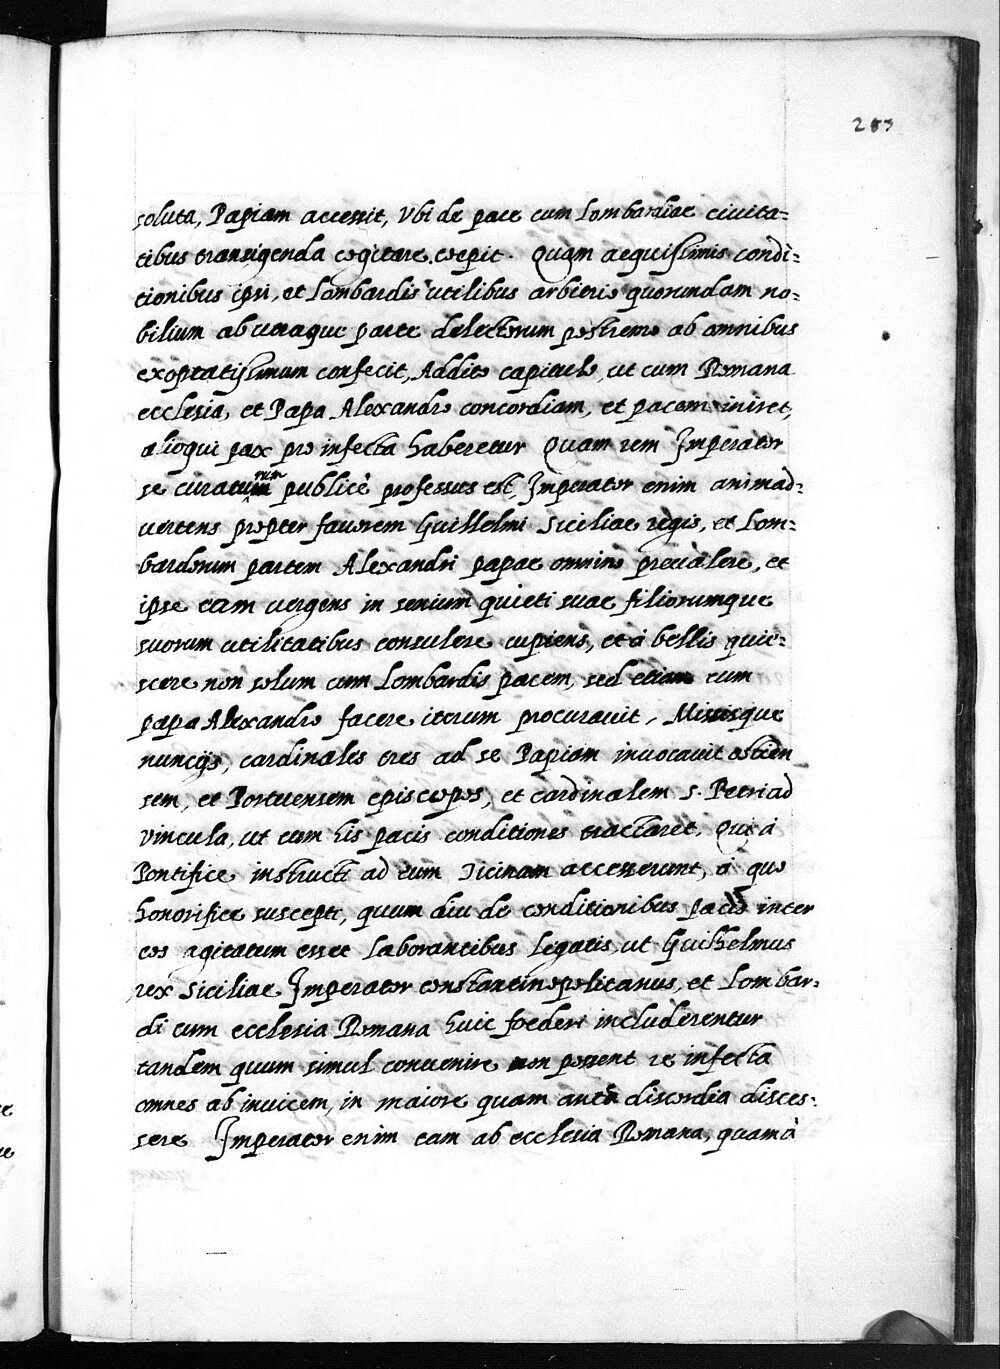 283
soluta, Papiam accessit, Vbi de pace cum Lombardiae ciuita=
tibus transigenda cogitare coepit. Quam aequissimis condi=
tionibus ipsi, et Lombardis utilibus arbitrio quorundam no=
bilium ab utraque parte delectorum postremo ab omnibus
exoptatissimum confecit, Addito capitulo, ut cum Romana
ecclesia, et Papa Alexandro concordiam, et pacem iniret,
alioqui pax pro infecta haberetur Quam rem Imperator
se curaturum publicè professus est, Imperator enim animad=
uertens propter fauorem Guillelmi Siciliae regis, et Lom=
bardorum partem Alexandri papae omnino preualere, et
ipse etiam uergens in senium quieti suae filiorumque
suorum utilitatibus consulere cupiens, et à bellis quie=
scere non solum cum Lombardis pacem, sed etiam cum
papa Alexandro facere iterum procurauit, Missisque
nuncijs, cardinales tres ad se Papiam inuocauit ostien
sem, et Portuensem episcopos, et cardinalem S. Petri ad
Vincula, ut cum his pacis conditiones tractaret, Qui à
Pontifice instructi ad eum Ticinam accesserunt, à quo
honorifice suscepti, quum diu de conditionibus pacis inter
eos agitatum esset laborantibus legatis, ut Guilhelmus
rex Siciliae Imperator constantinopolitanus, et Lombar=
di cum ecclesia Romana huic foederi includerentur
tandem quum simul conuenire non possent re infecta
omnes ab inuicem, in maiore quam antè discordia disces=
sere Imperator enim tam ab ecclesia Romana, quam à